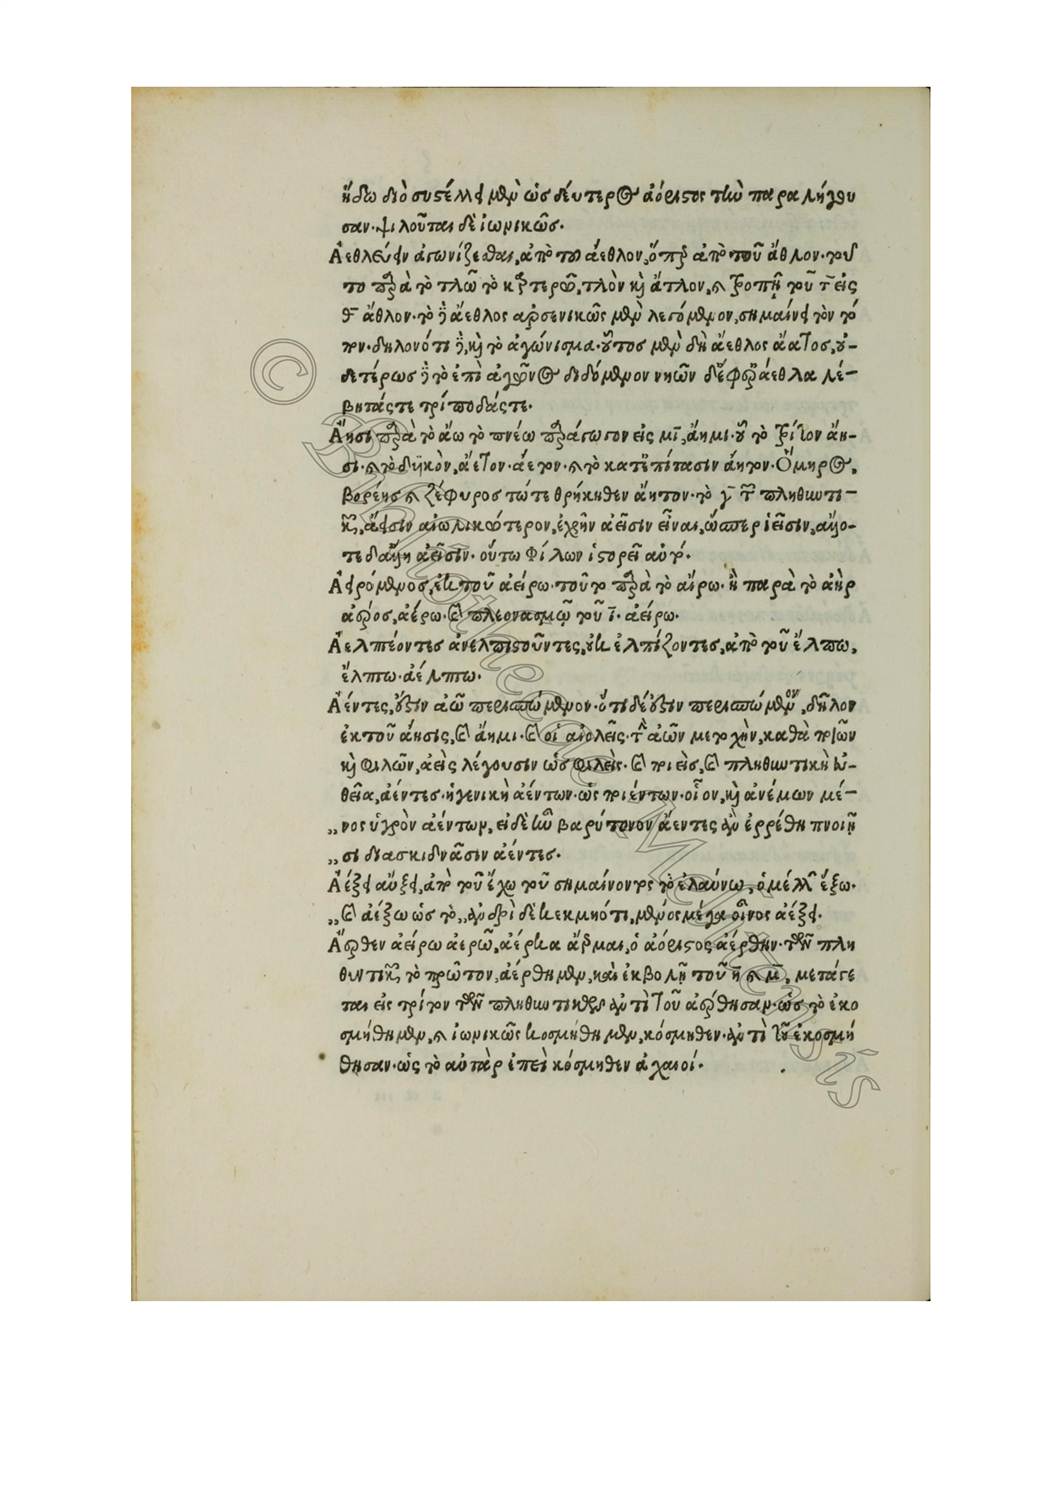 ἥδω διὸ συστέλλει μὲν ὡς δεύτερος ἀόριστος τὴν παραλήγου
σαν· ψιλοῦται δὲ ἰωνικῶς.
Ἀεθλεύειν ἀγωνίζεσθαι, ἀπὸ τοῦ ἄεθλον, ὅπερ ἀπὸ τοῦ ἄθλον· τοῦ
το παρὰ τὸ τλῶ τὸ καρτερῶ, τλὸν καὶ ἄτλον, καὶ τροπῇ τοῦ τ εἰς
θ ἄθλον· τὸ δὲ ἄεθλος ἀρσενικῶς μὲν λεγόμενον, σημαίνει τὸν τό
πον· δηλονότι δὲ, καὶ τὸ ἀγώνισμα· οὗτος μὲν δὴ ἄεθλος ἄατος, οὐ-
δετέρως δὲ τὸ ἐπὶ ἀγῶνος διδόμενον νηῶν δ' ἔφερ' ἄεθλα λέ-
βητάς τε τρίποδάς τε.
Ἄησι παρὰ τὸ ἄω τὸ πνέω παράγωγον εἰς μι, ἄημι· οὗ τὸ τρίτον ἄη-
σι· καὶ τὸ δυϊκὸν, ἄετον· ἄετον· καὶ τὸ κατ' ἐπίτασιν ἄητον· Ὅμηρος,
βορέης καὶ ζέφυρος τώτε θρήκηθεν ἄητον· τὸ γ τῶν πληθυντι-
κῶν, ἄεισιν αἰολικώτερον, ἐχρῆν ἀεῖσιν εἶναι, ὥσπερ ἱεῖσιν, ἄλλο-
τε δ' ἄλλη ἀεῖσιν· οὕτω Φίλων ἱστορεῖ αὐτό.
Ἀειρόμενος, ἐκ τοῦ ἀείρω· τοῦτο παρὰ τὸ αἴρω· ἢ παρὰ τὸ ἀὴρ
ἀέρος, ἀέρω· καὶ πλεονασμῷ τοῦ ι· ἀείρω.
Ἀελπέοντες ἀνελπιστοῦντες, οὐκ ἐλπίζοντες, ἀπὸ τοῦ ἔλπω,
ἔλπτω· ἀέλπτω.
Ἀέντες, οὔξιν ἀῶ περισπώμενον· ὅτι δέ οὔξιν περισπώμενον, δῆλον
ἐκ τοῦ ἄησις, καὶ ἄημι· καὶ οἱ αἰολεῖς· τὴν ἀῶν μετοχὴν, καθὰ ποιῶν
καὶ φιλῶν, ἀεὶς λέγουσιν ὡς φιλεὶς· καὶ ποιεὶς, καὶ πληθυντικὴ εὐ-
θεῖα, ἀέντες· ἡ γενικὴ ἀέντων· ὡς ποιέντων· οἷον, καὶ ἀνέμων μέ-
,,νος ὑγρὸν ἀέντων, εἰ δὲ ἦν βαρύτονον ἄεντες ἂν ἐρρέθη πνοιῇ
,,σι διασκιδνᾶσιν ἀέντες.
Ἀέξει αὔξει, ἀπὸ τοῦ ἔχω τοῦ σημαίνοντος τὸ ἐλαύνω, ὁ μέλλων ἕξω·
,,καὶ ἀέξω ὡς τὸ,, ἀνδρὶ δὲ κεκμηότι, μένος μέγα οἶνος ἀέξει.
Ἄερθεν ἀείρω ἀερῶ, ἀέρκα ἄερμαι, ὁ ἀόριστος ἀέρθην· τῶν πλη
θυντικῶν, τὸ πρῶτον, ἀέρθημεν, καὶ ἐκβολῇ τοῦ η καὶ μ, μετάγε
ται εἰς τρίτον τῶν πληθυντικῶν ἀντὶ τοῦ ἀέρθησαν· ὡς τὸ ἐκο
σμήθημεν, καὶ ἰωνικῶς κοσμήθημεν, κόσμηθεν· ἀντὶ τοῦ ἐκοσμή
θησαν· ὡς τὸ αὐτὰρ ἐπεὶ κόσμηθεν ἀχαιοί.
© Bibliotheca Mechanis